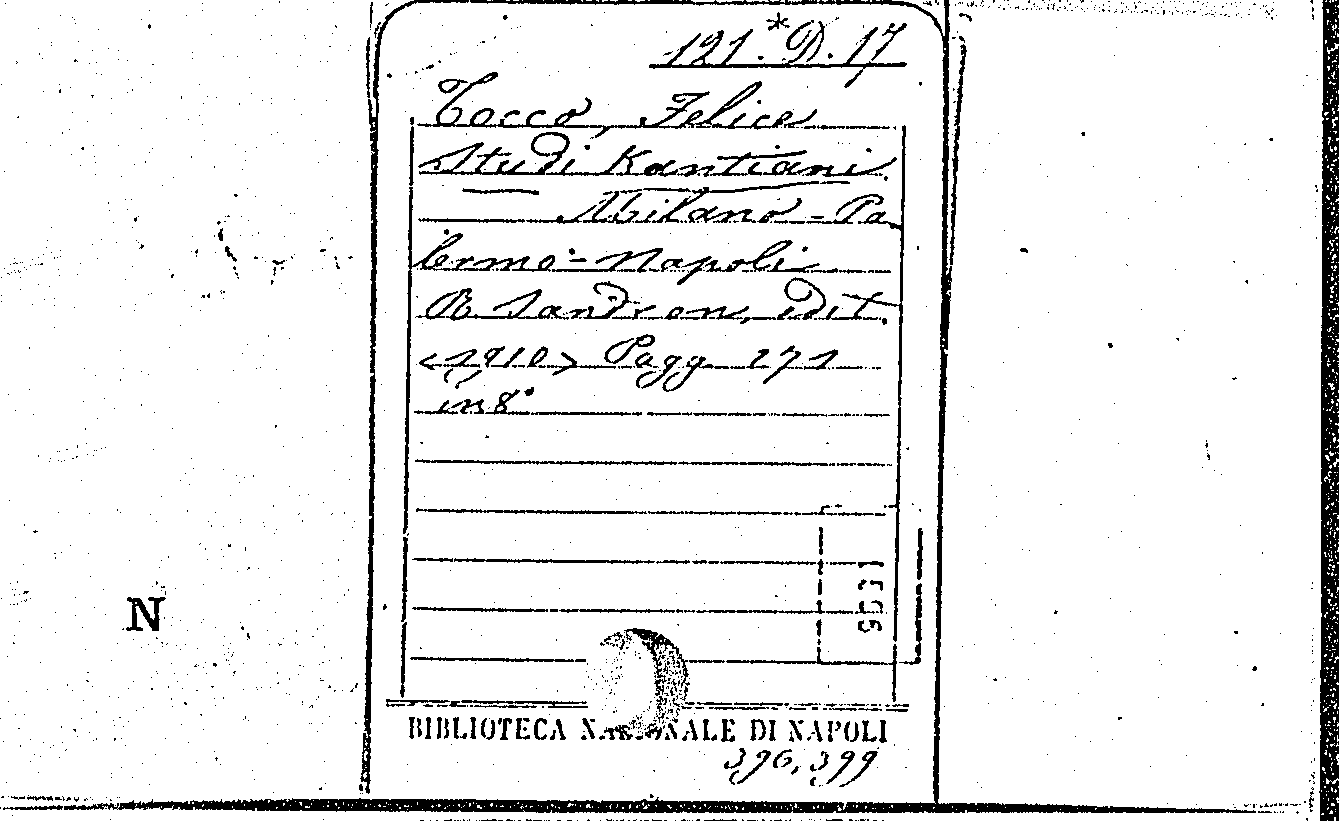 121.*D.17
Tocco, Felice
Studi Kantiani.
Milano - Pa
lermo - Napoli
R. Sandron, edit.
<1910> Pagg. 271
in 8°
N
BIBLIOTECA NAZIONALE DI NAPOLI
396,399